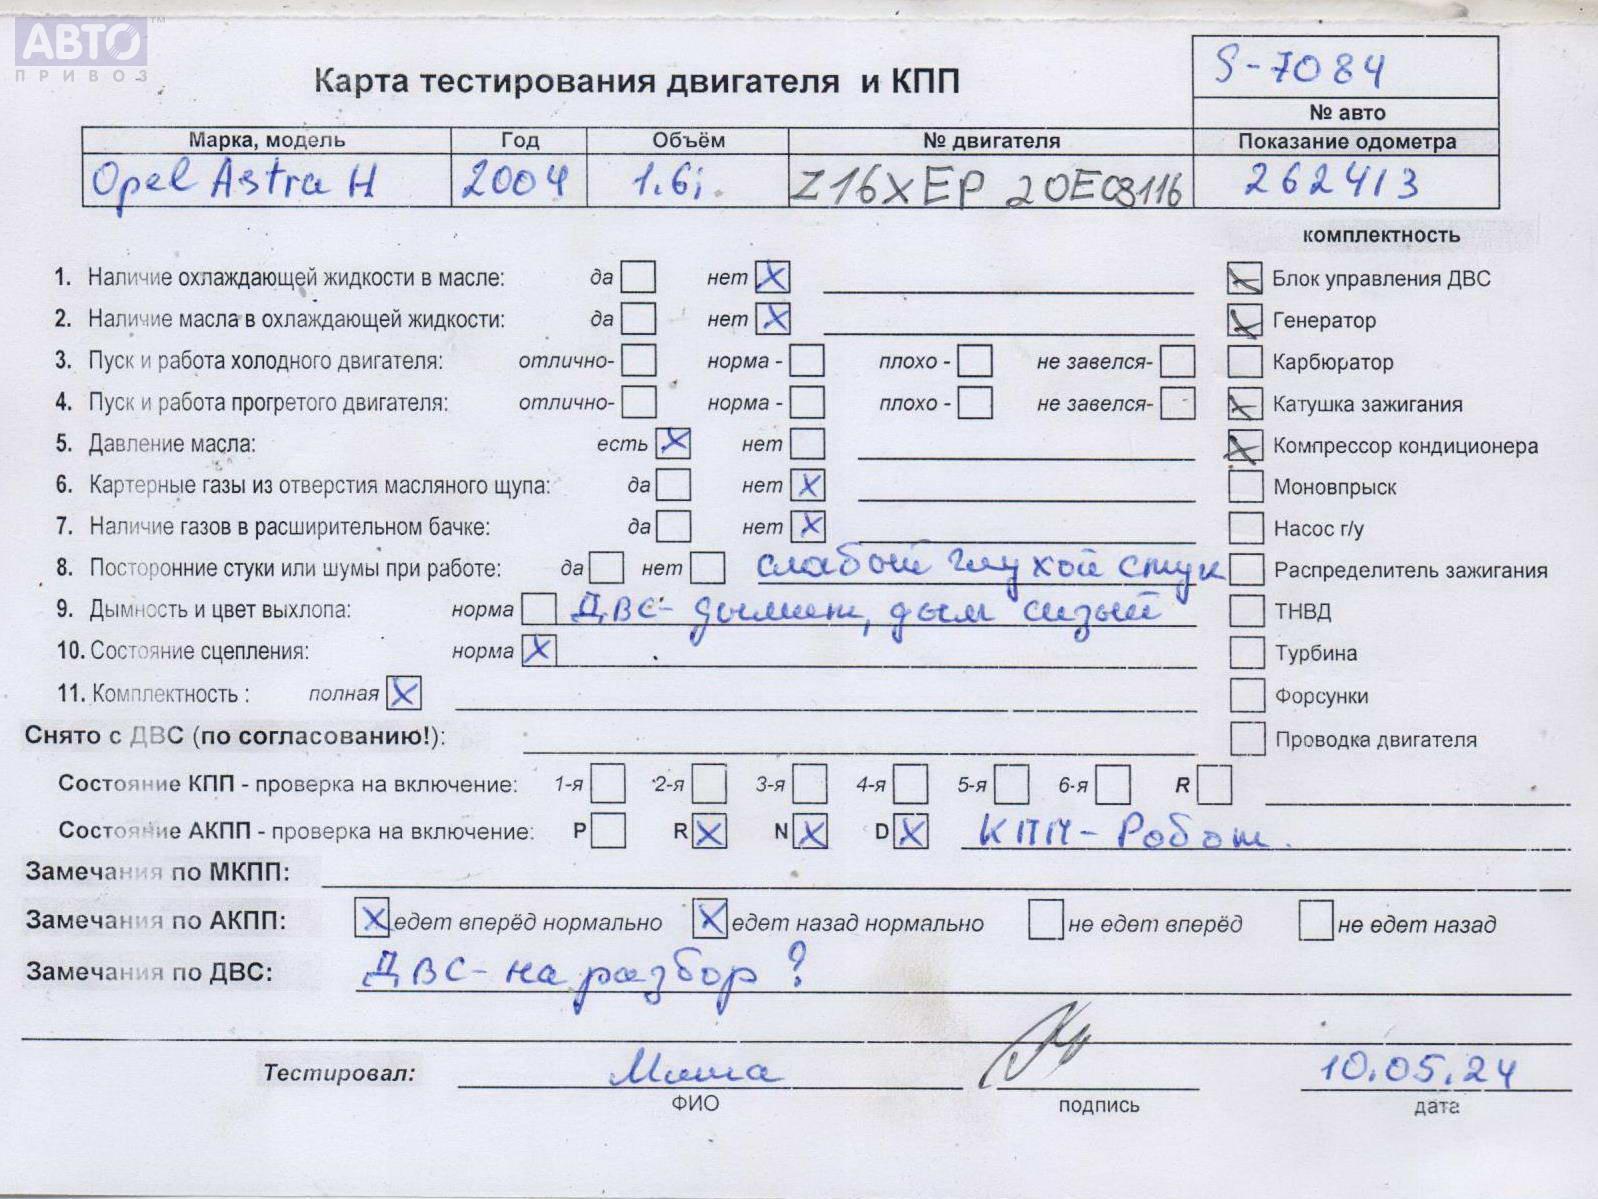 АВТО™
ПРИВОЗ
S-7084
Карта тестирования двигателя и КПП
№ авто
Марка, модель Год Объём № двигателя Показание одометра
Opel Astra H 2004 1.6i Z16XEP 20E03116 262413
комплектность
1. Наличие охлаждающей жидкости в масле: да нет X Блок управления ДВС
2. Наличие масла в охлаждающей жидкости: да нет X Генератор
3. Пуск и работа холодного двигателя: отлично- норма - плохо - не завелся- Карбюратор
4. Пуск и работа прогретого двигателя: отлично- норма - плохо - не завелся- Катушка зажигания
5. Давление масла: есть X нет Компрессор кондиционера
6. Картерные газы из отверстия масляного щупа: да нет X Моновпрыск
7. Наличие газов в расширительном бачке: да нет X Насос г/у
8. Посторонние стуки или шумы при работе: да нет слабый глухой стук Распределитель зажигания
9. Дымность и цвет выхлопа: норма ДВС- дымит, дым сизый ТНВД
10. Состояние сцепления: норма X Турбина
11. Комплектность : полная X Форсунки
Снято с ДВС (по согласованию!): Проводка двигателя
Состояние КПП - проверка на включение: 1-я 2-я 3-я 4-я 5-я 6-я R
Состояние АКПП - проверка на включение: P R X N X D X КПП- Робот.
Замечания по МКПП:
Замечания по АКПП: X едет вперёд нормально X едет назад нормально не едет вперёд не едет назад
Замечания по ДВС: ДВС- на разбор?
Тестировал: Миша 10.05.24
ФИО подпись дата